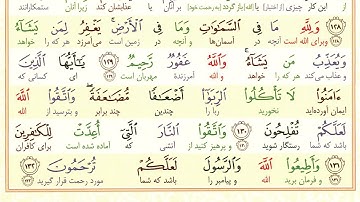 این کار چیزی (از اختیار) یا الله باز گردد (به رحمت خود) بر آنان یا عذابشان کند زیرا آنان ستمکارانند
﴿١٢٨﴾ وَلِلَّهِ مَا فِي السَّمَٰوَٰتِ وَمَا فِي الْأَرْضِ يَغْفِرُ لِمَن يَشَآءُ
و برای الله است آنچه در آسمان‌ها و آنچه در زمین است می‌آمرزد هر که را خواهد
وَيُعَذِّبُ مَن يَشَآءُ وَاللَّهُ غَفُورٌ رَّحِيمٌ ﴿١٢٩﴾ يَٰٓأَيُّهَا الَّذِينَ
و عذاب می‌کند هر که را خواهد و الله آمرزنده مهربان است ای کسانی که
ءَامَنُوا۟ لَا تَأْكُلُوا۟ الرِّبَوٰٓا۟ أَضْعَٰفًا مُّضَٰعَفَةً وَاتَّقُوا۟ اللَّهَ
ایمان آورده‌اید نخورید ربا را چندین چند برابر و بترسید از الله
لَعَلَّكُمْ تُفْلِحُونَ ﴿١٣٠﴾ وَاتَّقُوا۟ النَّارَ الَّتِيٓ أُعِدَّتْ لِلْكَٰفِرِينَ
باشد که شما رستگار شوید و بپرهیزید از آتشی که آماده شده است برای کافران
﴿١٣١﴾ وَأَطِيعُوا۟ اللَّهَ وَالرَّسُولَ لَعَلَّكُمْ تُرْحَمُونَ ﴿١٣٢﴾
و فرمان برید الله و پیامبر را باشد که شما مورد رحمت قرار گیرید